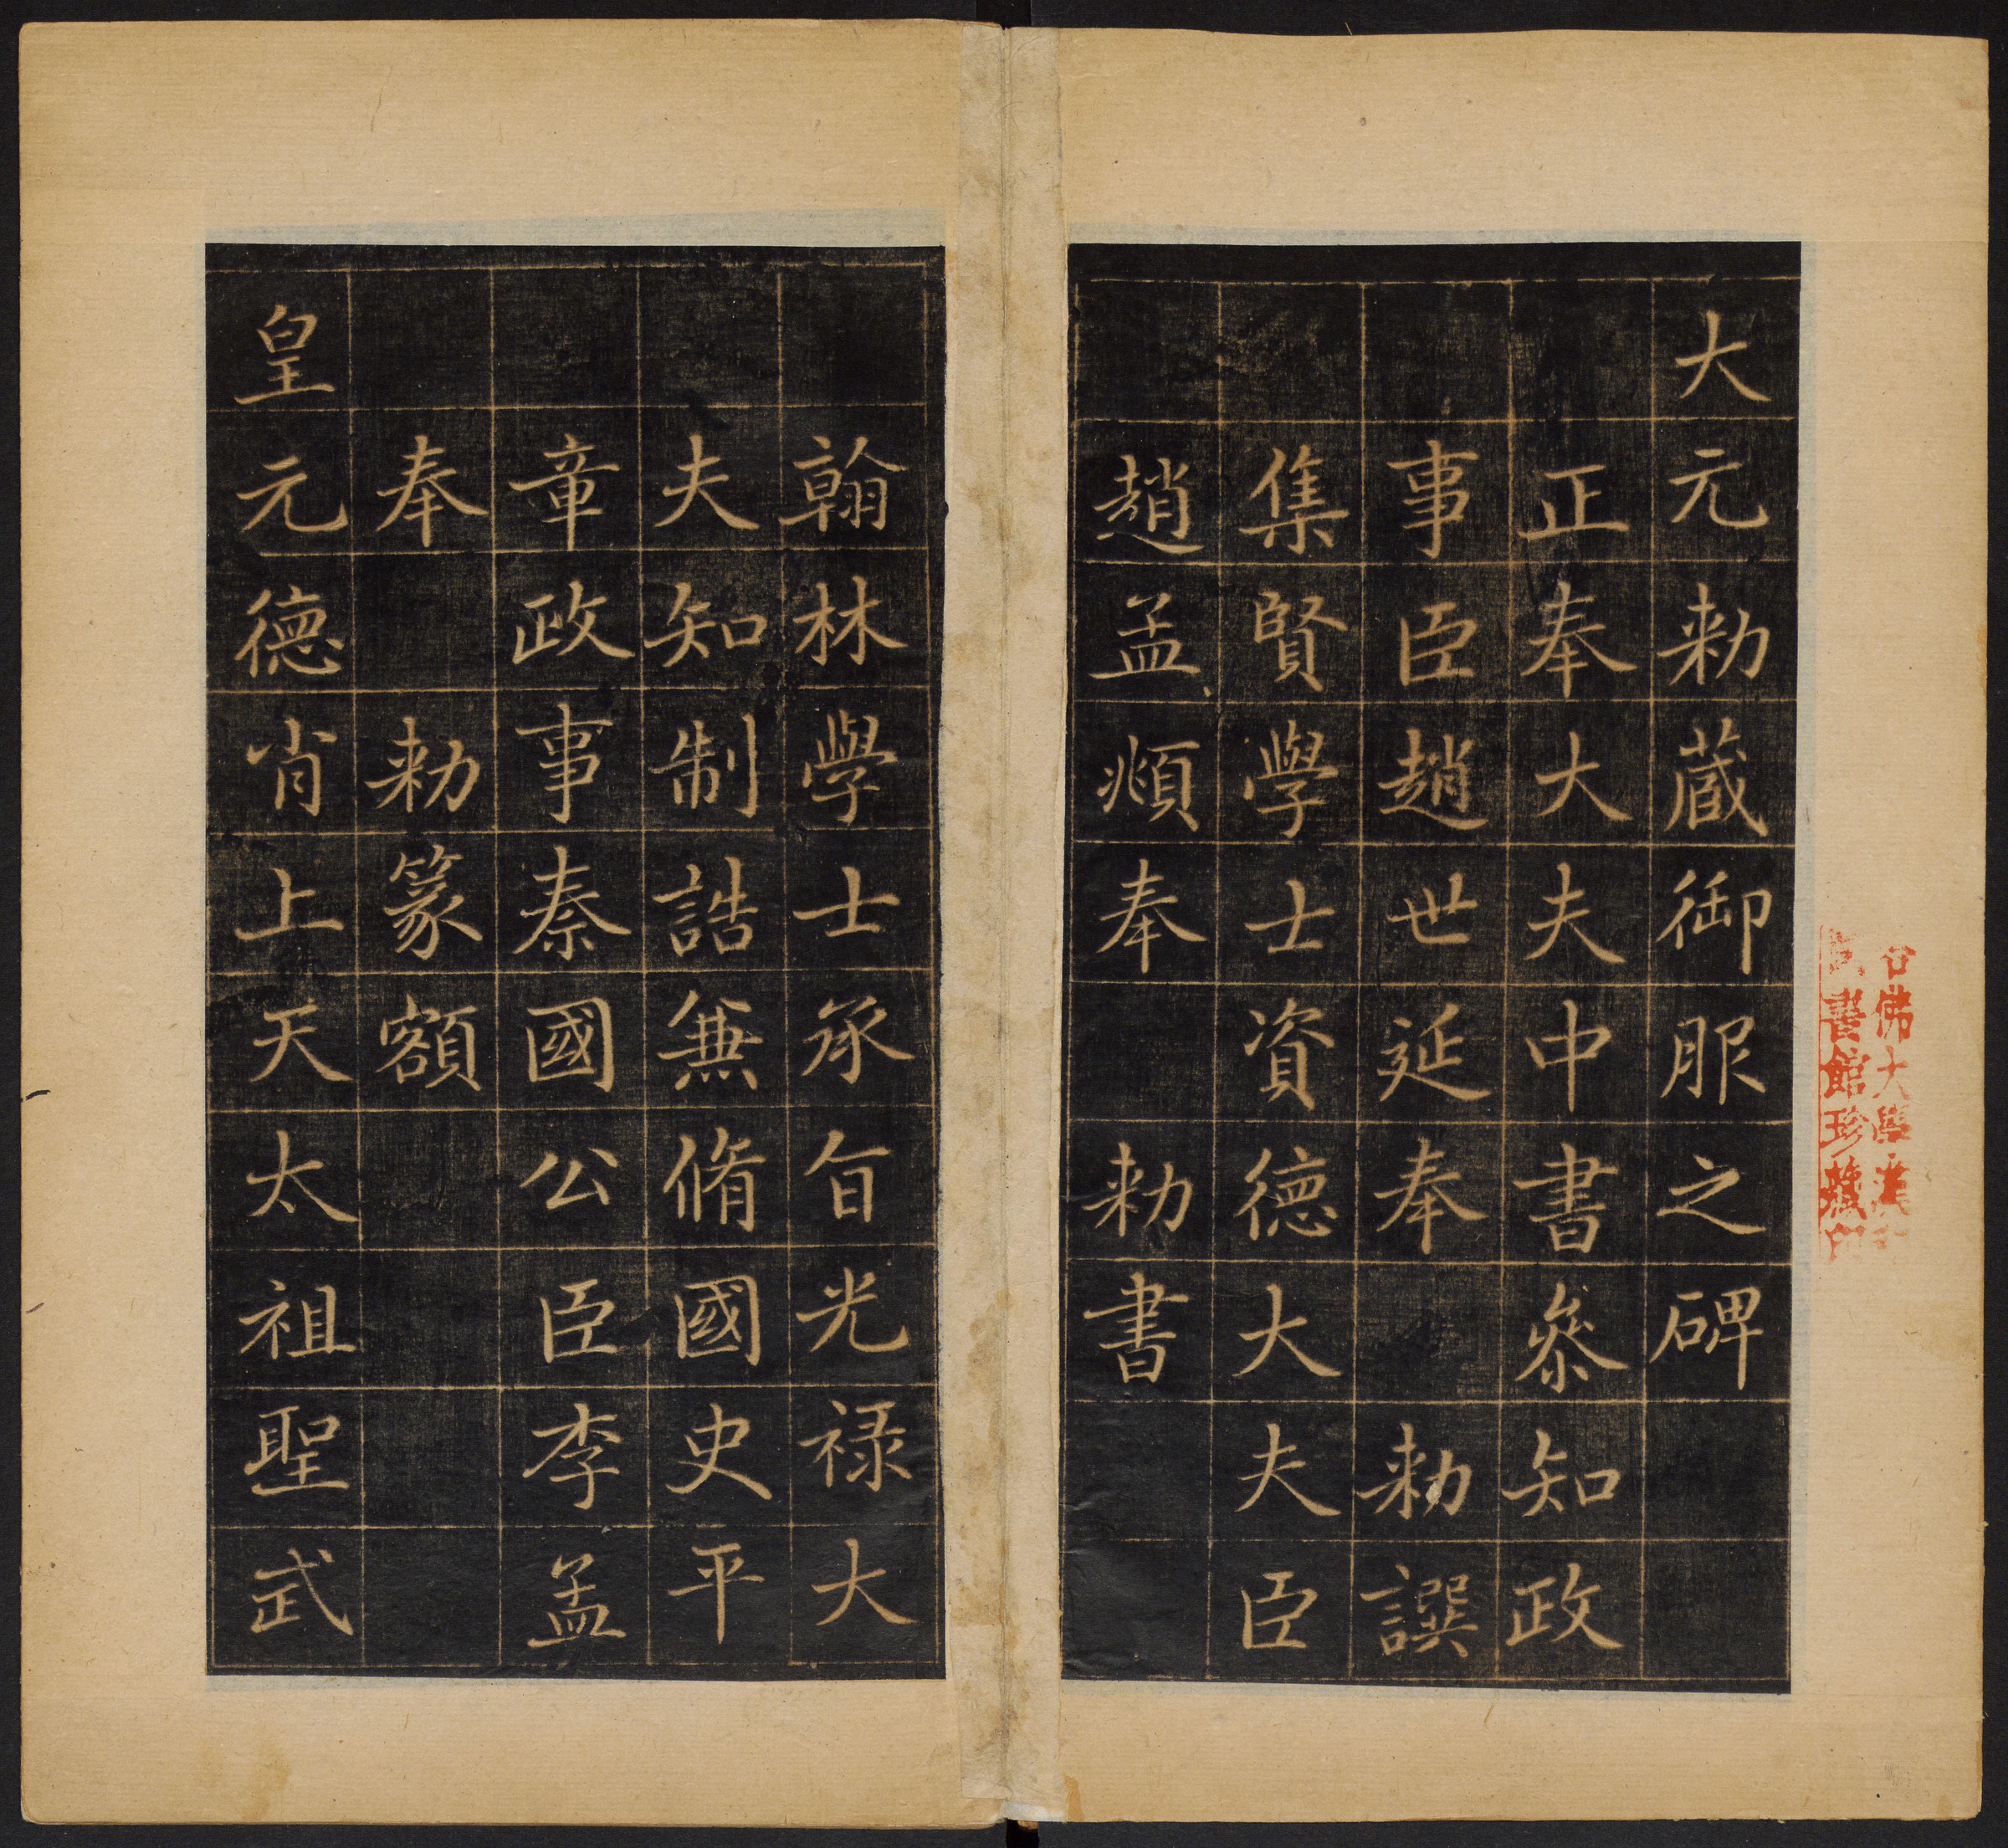 大元勑蔵御服之碑
正奉大夫中書叅知政
事臣趙世延奉 勑譔
集賢學士資德大夫臣
趙孟頫奉 勑書
翰林學士承旨光禄大
夫知制誥兼脩國史平
章政事秦國公臣李孟
奉 勑篆額
皇元德肖上天太祖聖武
佛大學漢
書館珍蔵印